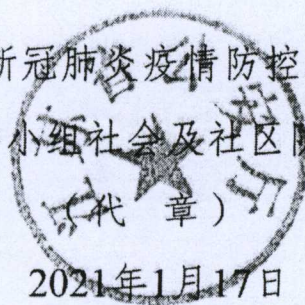 新冠肺炎疫情防控
小组社会及社区防
（代 章）
2021年1月17日